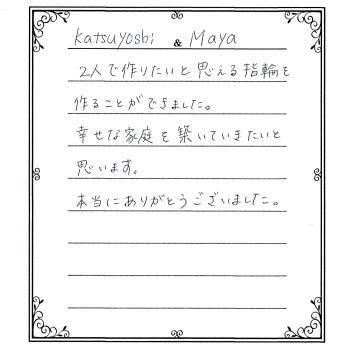 Katsuyoshi & Maya
2人で作りたいと思える指輪を
作ることができました。
幸せな家庭を築いていきたいと
思います。
本当にありがとうございました。